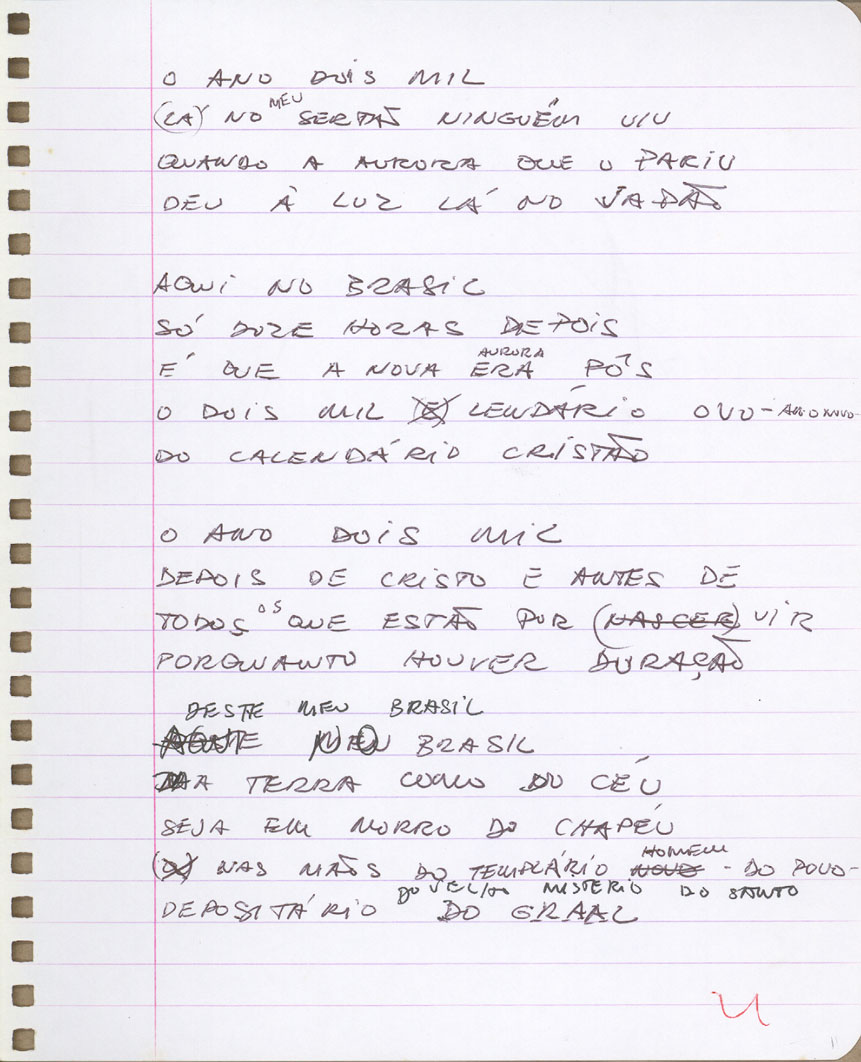 O ANO DOIS MIL
(LÁ) NO MEU SERTÃO NINGUÉM VIU
QUANDO A AURORA QUE O PARIU
DEU À LUZ LÁ NO JAPÃO
AQUI NO BRASIL
SÓ DOZE HORAS DEPOIS
AURORA
É QUE A NOVA ERA PÔS
O DOIS MIL (E) LENDÁRIO OVO-ANO NOVO-
DO CALENDÁRIO CRISTÃO
O ANO DOIS MIL
DEPOIS DE CRISTO E ANTES DE
TODOS OS QUE ESTÃO POR (NASCER) VIR
PORQUANTO HOUVER DURAÇÃO
DESTE MEU BRASIL
MEU BRASIL
NA TERRA COMO DO CÉU
SEJA EM MORRO DO CHAPÉU
HOMEM
NAS MÃOS DO TEMPLÁRIO NOVO - DO POVO-
DO VELHO MISTERIO DO SANTO
DEPOSITÁRIO DO GRAAL